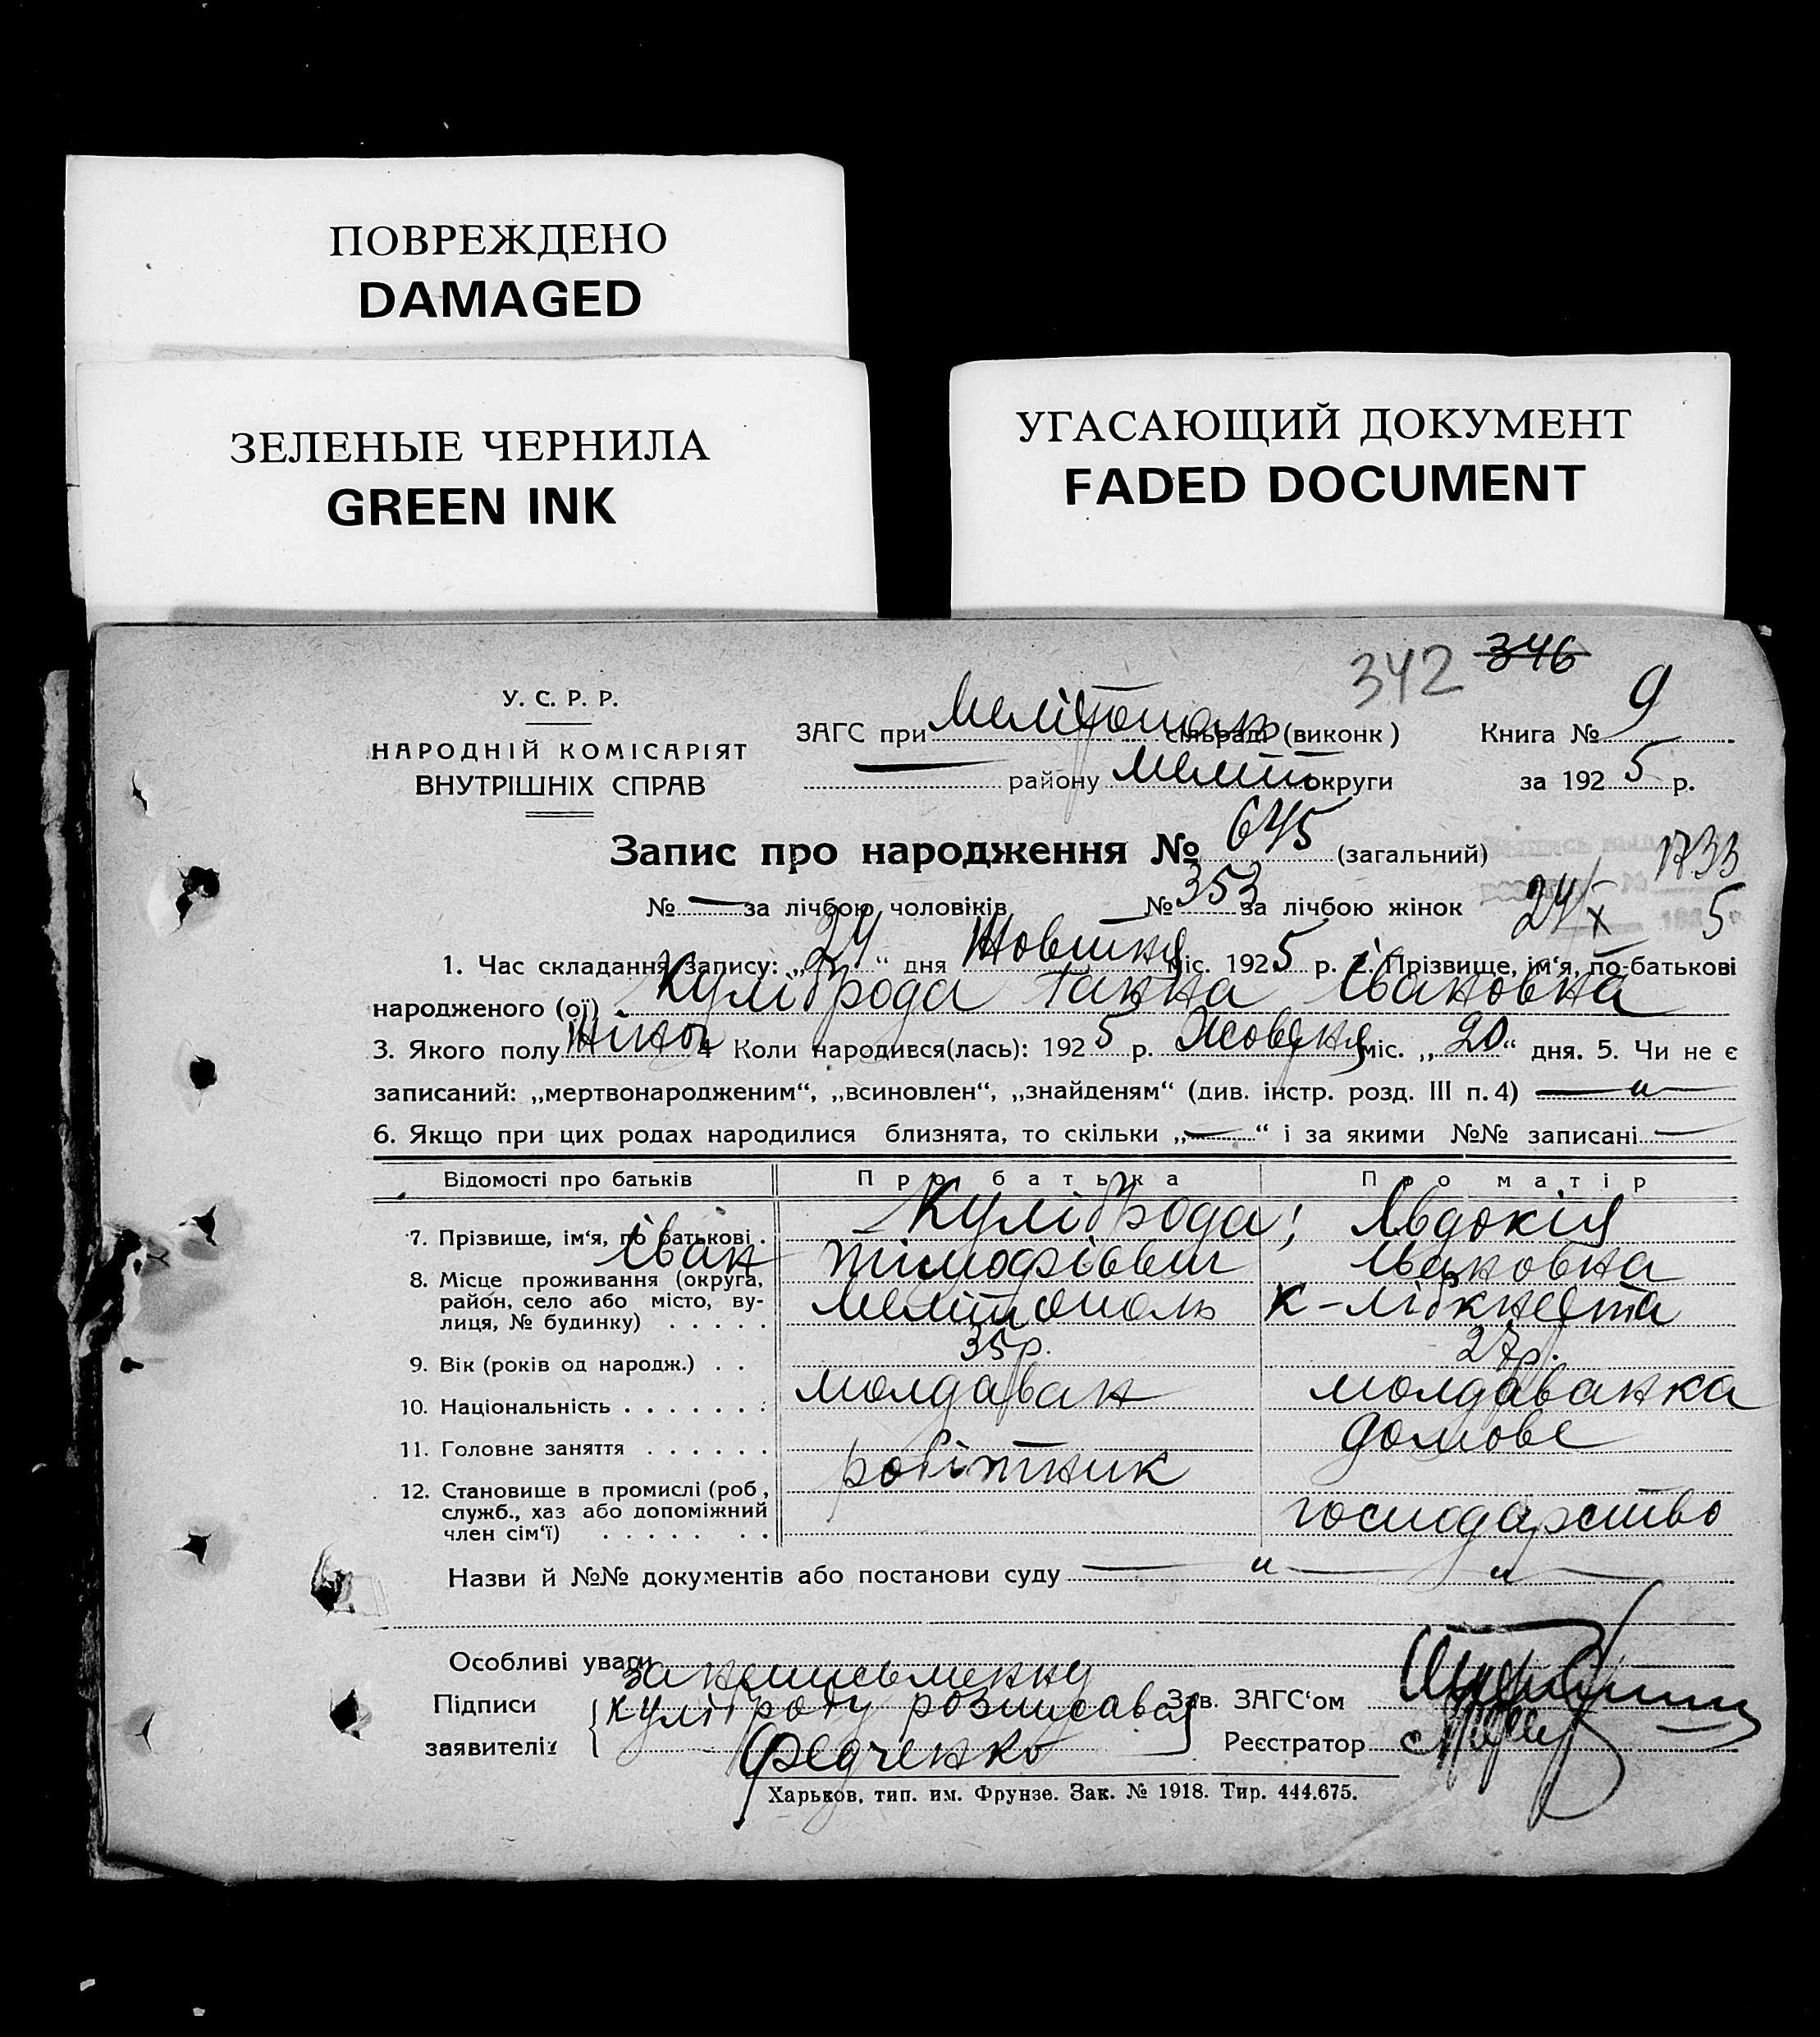 ПОВРЕЖДЕНО
DAMAGED
ЗЕЛЕНЫЕ ЧЕРНИЛА
GREEN INK
УГАСАЮЩИЙ ДОКУМЕНТ
FADED DOCUMENT
342 346
У. С. Р. Р.
НАРОДНІЙ КОМІСАРІЯТ
ВНУТРІШНІХ СПРАВ
ЗАГС при Мелітополь сільраді (виконк) Книга № 9
— району Меліт округи за 1925 р.
Запис про народження № 645 (загальний)
1733
№ — за лічбою чоловіків № 353 за лічбою жінок
24/X 5
1. Час складання запису: „24“ дня Жовтня міс. 1925 р. 2. Прізвище, ім'я, по-батькові
народженого (ої) Куліброда Ганна Івановна
3. Якого полу жіноч 4 Коли народився(лась): 1925 р. Жовтня міс. „20“ дня. 5. Чи не є
записаний: „мертвонародженим“, „всиновлен“, „знайденям“ (див. інстр. розд. III п. 4) — „ —
6. Якщо при цих родах народилися близнята, то скільки „—“ і за якими №№ записані —
Відомості про батьків Про батька Про матір
7. Прізвище, ім'я, по батькові . Куліброда; Явдокія
Іван Тімофіевич Івановна
8. Місце проживання (округа,
район, село або місто, ву-
лиця, № будинку) . . . . . Мелітополь К-Лібкнехта
9. Вік (років од народж.) . . 35 р. 27 р.
10. Національність . . . . . . . молдаван молдаванка
11. Головне заняття . . . . . . робітник домове
12. Становище в промислі (роб,
служб., хаз або допоміжний
член сім'ї) . . . . . . . . господарство
Назви й №№ документів або постанови суду — „ — „ —
Особливі уваги
за неписьменну
Підписи Куліброду розписавсь Зав. ЗАГС'ом
заявителів Федченко Реєстратор
Харьков, тип. им. Фрунзе. Зак. № 1918. Тир. 444.675.